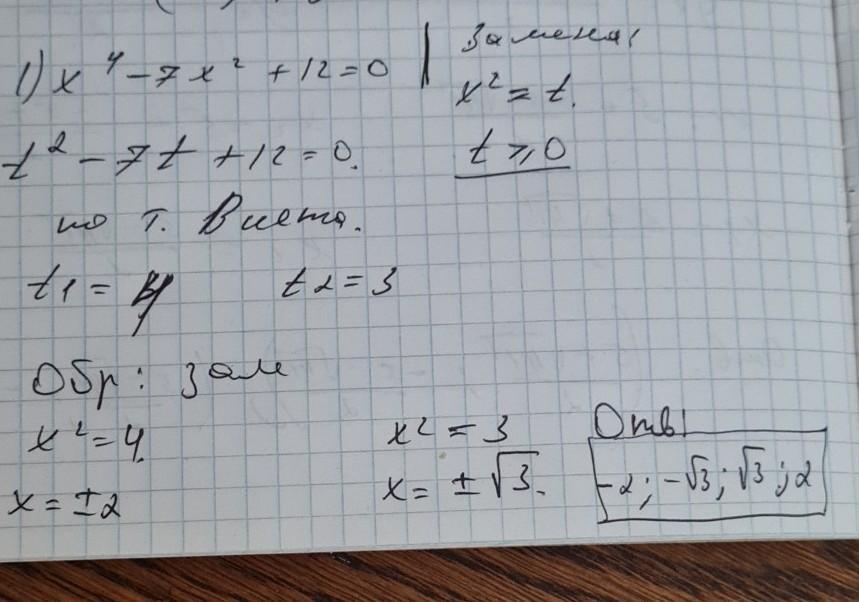 1) x⁴ - 7x² + 12 = 0 | Замена:
x² = t.
t² - 7t + 12 = 0. t ≥ 0
по т. Виета.
t1 = 4 t2 = 3
Обр: зам
x² = 4. x² = 3
x = ±2 x = ±√3.
Отв:
-2; -√3; √3; 2